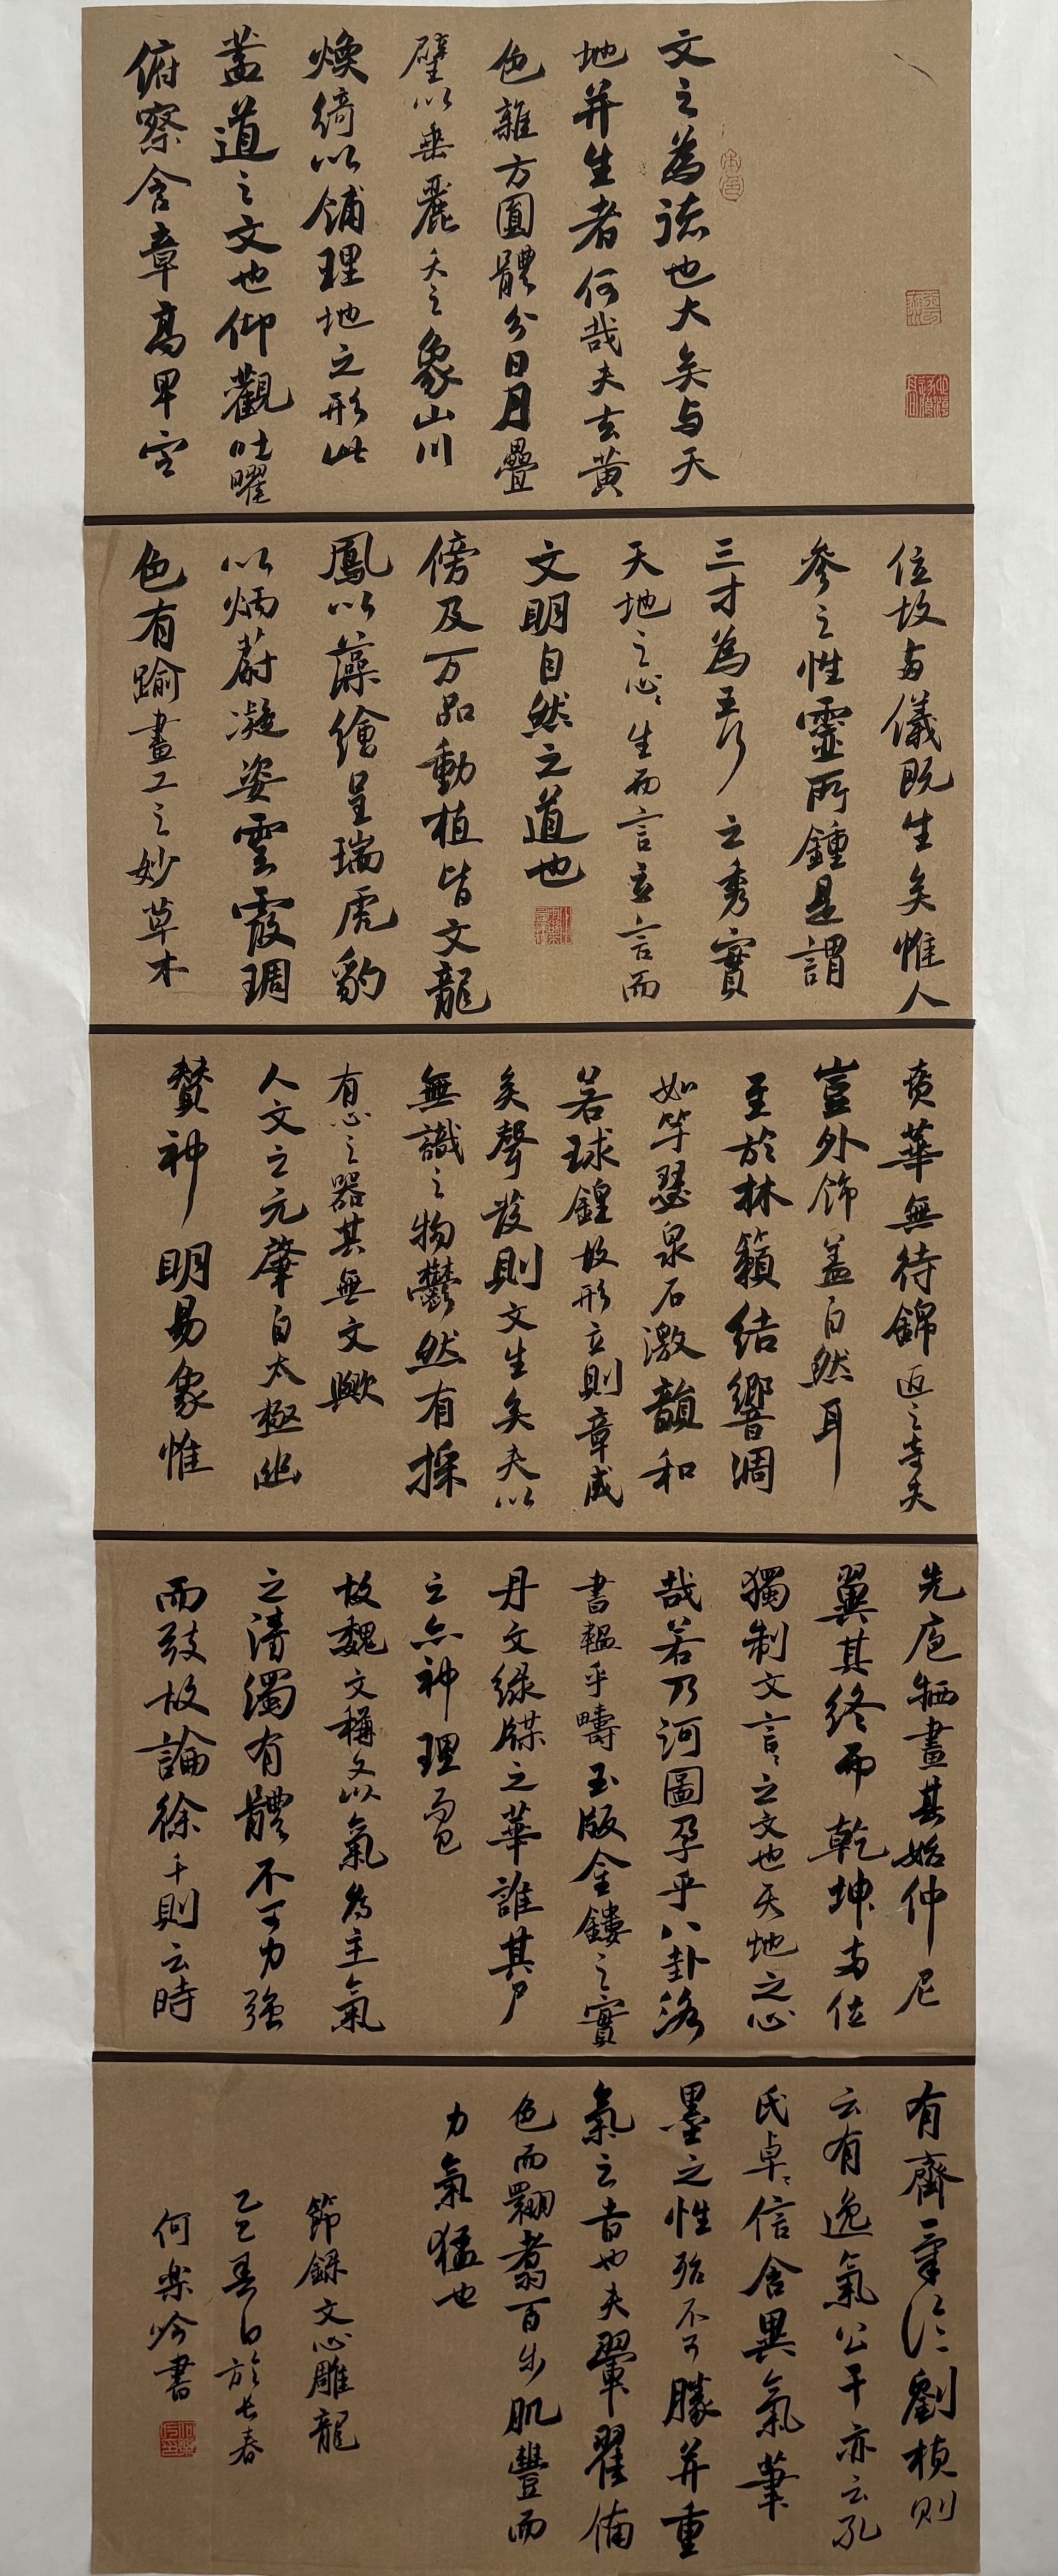 文之為德也大矣与天
地并生者何哉夫玄黄
色雜方圓體分日月疊
璧以垂麗天之象山川
煥綺以鋪理地之形此
蓋道之文也仰觀吐曜
俯察含章高卑定
位故兩儀既生矣惟人
參之性靈所鍾是謂
三才為五行之秀實
天地之心心生而言立言而
文明自然之道也
傍及万品動植皆文龍
鳳以藻繪呈瑞虎豹
以炳蔚凝姿雲霞琱
色有踰畫工之妙草木
賁華無待錦匠之奇夫
豈外飾蓋自然耳
至於林籟結響调
如竽瑟泉石激韻和
若球鍠故形立則章成
矣聲發則文生矣夫以
無識之物鬱然有採
有心之器其無文歟
人文之元肇自太極幽
贊神明易象惟
先庖牺畫其始仲尼
翼其終而乾坤兩位
獨制文言言之文也天地之心
哉若乃河圖孕乎八卦洛
書韞乎疇玉版金鏤之實
丹文绿牒之華誰其尸
之亦神理而已
故魏文稱文以氣為主氣
之清濁有體不可力强
而致故論徐干則云時
有齊氣论劉楨則
云有逸氣公干亦云孔
氏卓卓信含異氣筆
墨之性殆不可勝并重
氣之旨也夫翬翟備
色而翾翥百步肌豐而
力氣猛也
節録文心雕龍
乙巳春日於长春
何樂吟書